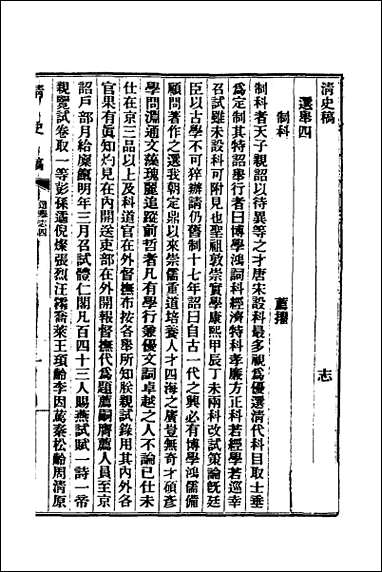 清史稿 志
選舉四
制科 薦擢
制科者天子親詔以待異等之才唐宋設科最多視為優選清代科目取士垂
為定制其特詔舉行者曰博學鴻詞科經濟特科孝廉方正科若經學若巡幸
召試雖未設科可附見也聖祖敦崇實學康熙甲辰丁未兩科改試策論既廷
臣以古學不可猝辦請仍舊制十七年詔曰自古一代之興必有博學鴻儒備
顧問著作之選我朝定鼎以來崇儒重道培養人才四海之廣豈無奇才碩彥
學問淵通文藻瑰麗追蹤前哲者凡有學行兼優文詞卓越之人不論已仕未
仕在京三品以上及科道官在外督撫布按各舉所知朕親試錄用其內外各
官果有真知灼見在內開送吏部在外開報督撫代為題薦嗣膺薦人員至京
詔戶部月給廩餼明年三月召試體仁閣凡百四十三人賜燕試賦一詩一帝
親覽試卷取一等彭孫遹倪燦張烈汪霦喬萊王頊齡李因篤秦松齡周清原
清史稿 選舉志四